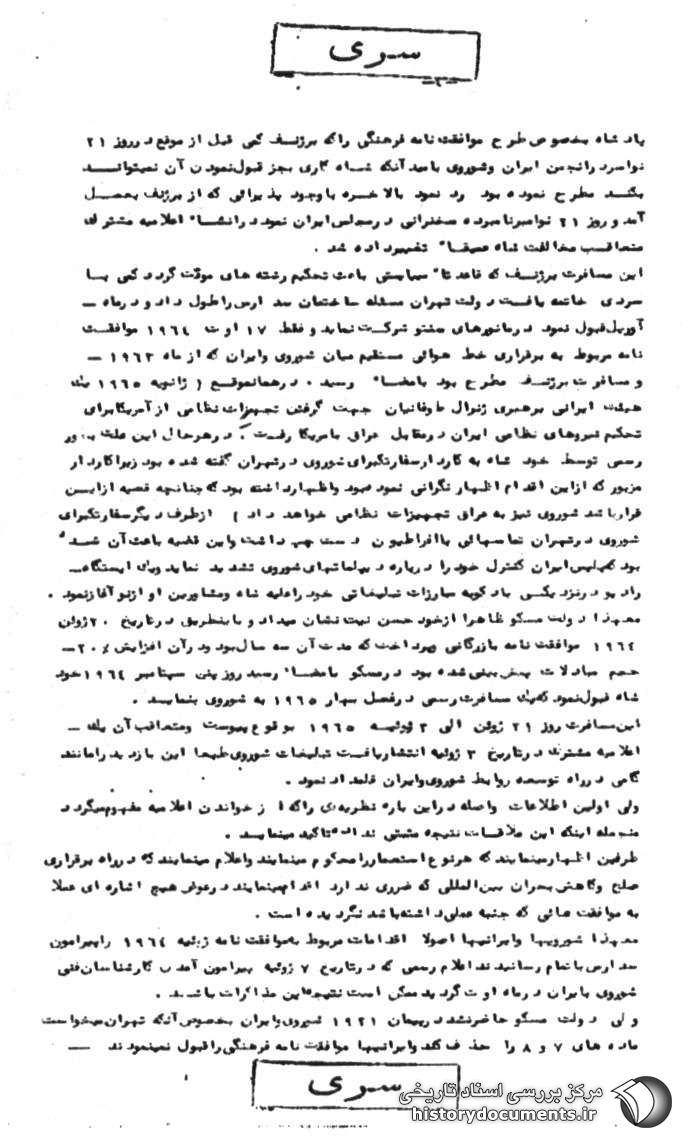 سری
-٢-
یاد شاه بخصوص طرح موافقت نامه فرهنگی راکه برژنف کمی قبل از موقع در روز ٢١
نوامبر در انجمن ایران وشوروی بامید آنکه شاه کاری بجز قبول نمودن آن نمیتوانـد
بکند مطرح نموده بود رد نمود بالاخره باوجود پذیرائی که از برژنف بعمـل
آمد و روز ٢١ نوامبر نامبرده سخنرانی در مجلس ایران نمود در انشاء اعلامیه مشترک
متعاقب مخالفت شاه عمیقاً تغییر داده شد .
این مسافرت برژنـف که قاعدتاً میبایستی باعث تحکیم رشته های مودّت گردد کمی بـا
سردی خاتمه یافت دولت تهران مسئله ساختمان سد ارس راطول داد و در ماه ـ
آوریل قبول نمود در مانورهای سنتو شرکت نماید و فقط ١٧ اوت ١٩٦٤ موافقـت
نامه مربوط به برقراری خط هوائی مستقیم میان شوروی وایران که از ماه ١٩٦٣ ـ
و مسافرت برژنـف مطرح بود بامضاء رسید . در همانموقع ( ژانویه ١٩٦٥ یک
هیئت ایرانی برهبری ژنرال طوفانیان جهت گرفتن تجهیزات نظامی از آمریکا برای
تحکیم نیروهای نظامی ایران در مقابل عراق بامریکا رفت . در هرحال این علت بطور
رسمی توسط خود شاه به کاردار سفارتکبرای شوروی در تهران گفته شده بود زیرا کاردار
مزبور که از این اقدام اظهار نگرانی نموده بود واظهار داشته بود که چنانچه قضیه از ایـن
قرار باشد شوروی نیز به عراق تجهیزات نظامی خواهد داد ) از طرف دیگر سفارتکبرای
شوروی در تهران تماسهائی با افراطیون دست چپ داشت واین قضیه باعث آن شده
بود که پلیس ایران کنترل خود را درباره دیپلماتهای شوروی تشدید نماید ویک ایستگاه ـ
رادیو در نزدیکی باد کوبه مبارزات تبلیغاتی خود را علیه شاه ومشاورین او از نو آغاز نمود .
معهذا دولت مسکو ظاهرا از خود حسن نیت نشان میداد و باینطریق در تاریخ ٢٠ ژوئن
١٩٦٤ موافقت نامه بازرگانی که مدت آن سه سال بود و در آن افزایش ٢٠٪ ـ
حجم مبادلات پیش بینی شده بود در مسکو بامضاء رسید روز سپتامبر ١٩٦٤ خود
شاه قبول نمود که یک مسافرت رسمی در فصل بهار ١٩٦٥ به شوروی بنمایـد .
این مسافرت روز ٢١ ژوئن الی ٣ ژوئیـه ١٩٦٥ بوقوع پیوست ومتعاقب آن یک ـ
اعلامیه مشترک در تاریخ ٣ ژوئیه انتشار یافت تبلیغات شوروی طبعا این بازدید را مانند
گامی در راه توسعه روابط شوروی وایران قلمداد نمود .
ولی اولین اطلاعات واصله در این باره نظریه‌ی راکه از خواندن اعلامیه مفهوم میگردد
منجمله اینکه این ملاقـات نتیجه مثبتی نداده تاکید مینمایـد .
طرفین اظهار مینمایند که هرنوع استعمار را محکوم مینمایند واعلام مینمایند که در راه برقراری
صلح وکاهش بحران بین‌المللی که ضرری ندارد اقدام مینمایند در عوض هیچ اشاره ای عملا
به موافقت هائی که جنبه عملی داشته باشد نگردیده است .
معهذا شورویها وایرانیها اصولا اقدامات مربوط به موافقت نامه ژوئیه ١٩٦٤ را پیرامون
سد ارس باتمام رسانیدند اعلام رسمی که در تاریخ ٧ ژوئیه پیرامون آمدن کارشناسان فنی
شوروی بایران در ماه اوت گردید ممکن است نتیجه این مذاکرات باشد .
ولی دولت مسکو حاضر نشد در پیمان ١٩٢١ شوروی وایران بخصوص آنکه تهران میخواست
ماده های ٧ و ٨ را حذف کند وایرانیها موافقت نامه فرهنگی را قبول نمینمودند ـ
سری
مرکز بررسی اسناد تاریخی
historydocuments.ir